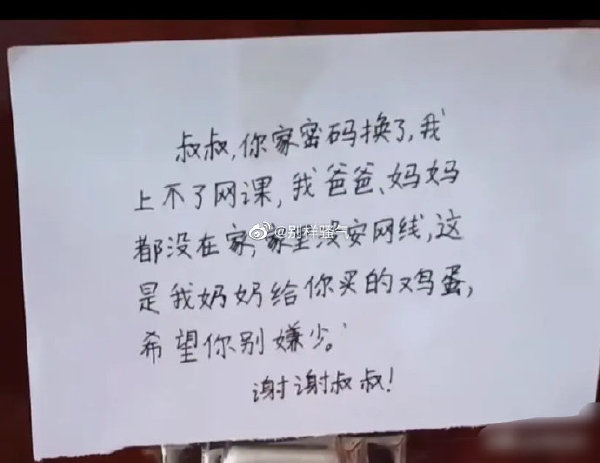 叔叔,你家密码换了,我
上不了网课,我爸爸、妈妈
都没在家,家里没安网线,这
是我奶奶给你买的鸡蛋,
希望你别嫌少。
谢谢叔叔!
@别样骚气